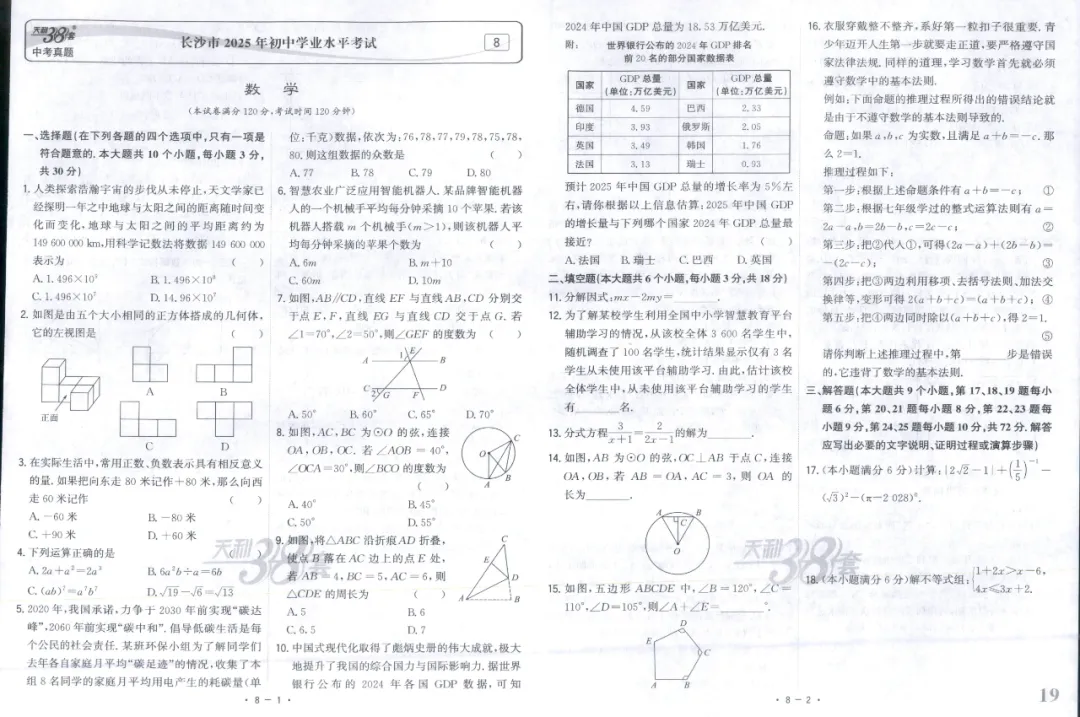 天利38套
中考真题
长沙市 2025 年初中学业水平考试
8
数 学
(本试卷满分 120 分,考试时间 120 分钟)
一、选择题(在下列各题的四个选项中,只有一项是
符合题意的.本大题共 10 个小题,每小题 3 分,
共 30 分)
1. 人类探索浩瀚宇宙的步伐从未停止,天文学家已
经探明一年之中地球与太阳之间的距离随时间变
化而变化,地球与太阳之间的平均距离约为
149 600 000 km,用科学记数法将数据 149 600 000
表示为 ( )
A. 1.496×10⁹ B. 1.496×10⁸
C. 1.496×10⁷ D. 14.96×10⁷
2. 如图是由五个大小相同的正方体搭成的几何体,
它的左视图是 ( )
正面
A B
C D
3. 在实际生活中,常用正数、负数表示具有相反意义
的量.如果把向东走 80 米记作+80 米,那么向西
走 60 米记作 ( )
A. -60 米 B. -80 米
C. +90 米 D. +60 米
4. 下列运算正确的是 ( )
A. 2a+a²=2a³ B. 6a²b÷a=6b
C. (ab)⁷=a⁷b⁷ D. √19-√6=√13
5. 2020 年,我国承诺,力争于 2030 年前实现“碳达
峰”,2060 年前实现“碳中和”.倡导低碳生活是每
个公民的社会责任.某班环保小组为了解同学们
去年各自家庭月平均“碳足迹”的情况,收集了本
组 8 名同学的家庭月平均用电产生的耗碳量(单
位:千克)数据,依次为:76,78,77,79,78,75,78,
80.则这组数据的众数是 ( )
A. 77 B. 78 C. 79 D. 80
6. 智慧农业广泛应用智能机器人.某品牌智能机器
人的一个机械手平均每分钟采摘 10 个苹果.若该
机器人搭载 m 个机械手(m>1),则该机器人平
均每分钟采摘的苹果个数为 ( )
A. 6m B. m+10
C. 60m D. 10m
7. 如图,AB∥CD,直线 EF 与直线 AB,CD 分别交
于点 E,F,直线 EG 与直线 CD 交于点 G.若
∠1=70°,∠2=50°,则∠GEF 的度数为 ( )
A 1 E B
C 2 G F D
A. 50° B. 60° C. 65° D. 70°
8. 如图,AC,BC 为⊙O 的弦,连接
OA,OB,OC.若∠AOB=40°,
∠OCA=30°,则∠BCO 的度数为
( )
O C A B
A. 40° B. 45°
C. 50° D. 55°
9. 如图,将△ABC 沿折痕 AD 折叠,
使点 B 落在 AC 边上的点 E 处,
若 AB=4,BC=5,AC=6,则
△CDE 的周长为 ( )
C E D A B
A. 5 B. 6
C. 6.5 D. 7
10. 中国式现代化取得了彪炳史册的伟大成就,极大
地提升了我国的综合国力与国际影响力.据世界
银行公布的 2024 年各国 GDP 数据,可知
· 8－1 ·
2024 年中国 GDP 总量为 18.53 万亿美元.
附: 世界银行公布的 2024 年 GDP 排名
前 20 名的部分国家数据表
国家 GDP 总量(单位:万亿美元) 国家 GDP 总量(单位:万亿美元)
德国 4.59 巴西 2.33
印度 3.93 俄罗斯 2.05
英国 3.49 韩国 1.76
法国 3.13 瑞士 0.93
预计 2025 年中国 GDP 总量的增长率为 5%左
右,请你根据以上信息估算:2025 年中国 GDP
的增长量与下列哪个国家 2024 年 GDP 总量最
接近? ( )
A. 法国 B. 瑞士 C. 巴西 D. 英国
二、填空题(本大题共 6 个小题,每小题 3 分,共 18 分)
11. 分解因式:mx-2my=______.
12. 为了解某校学生利用全国中小学智慧教育平台
辅助学习的情况,从该校全体 3 600 名学生中,
随机调查了 100 名学生,统计结果显示仅有 3 名
学生从未使用该平台辅助学习.由此,估计该校
全体学生中,从未使用该平台辅助学习的学生
有______名.
13. 分式方程 3/(x+1)=2/(2x-1) 的解为______.
14. 如图,AB 为⊙O 的弦,OC⊥AB 于点 C,连接
OA,OB,若 AB=OA,AC=3,则 OA 的
长为______.
A B C O
15. 如图,五边形 ABCDE 中,∠B=120°,∠C=
110°,∠D=105°,则∠A+∠E=______°.
D E C A B
· 8－2 ·
16. 衣服穿戴整不整齐,系好第一粒扣子很重要.青
少年迈开人生第一步就要走正道,要严格遵守国
家法律法规.同样的道理,学习数学首先就必须
遵守数学中的基本法则.
例如:下面命题的推理过程所得出的错误结论就
是由于不遵守数学的基本法则导致的.
命题:如果 a,b,c 为实数,且满足 a+b=-c.那
么 2=1.
推理过程如下:
第一步:根据上述命题条件有 a+b=-c; ①
第二步:根据七年级学过的整式运算法则有 a=
2a-a,b=2b-b,c=2c-c; ②
第三步:把②代入①,可得(2a-a)+(2b-b)=
-(2c-c); ③
第四步:把③两边利用移项、去括号法则、加法交
换律等,变形可得 2(a+b+c)=(a+b+c); ④
第五步:把④两边同时除以(a+b+c),得 2=1.
⑤
请你判断上述推理过程中,第______步是错误
的,它违背了数学的基本法则.
三、解答题(本大题共 9 个小题,第 17、18、19 题每小
题 6 分,第 20、21 题每小题 8 分,第 22、23 题每
小题 9 分,第 24、25 题每小题 10 分,共 72 分.解答
应写出必要的文字说明、证明过程或演算步骤)
17. (本小题满分 6 分)计算:|2√2-1|+(1/5)⁻¹-
(√3)²-(π-2 028)⁰.
18. (本小题满分 6 分)解不等式组:{1+2x>x-6,
4x≤3x+2.
19
天利38套
天利38套